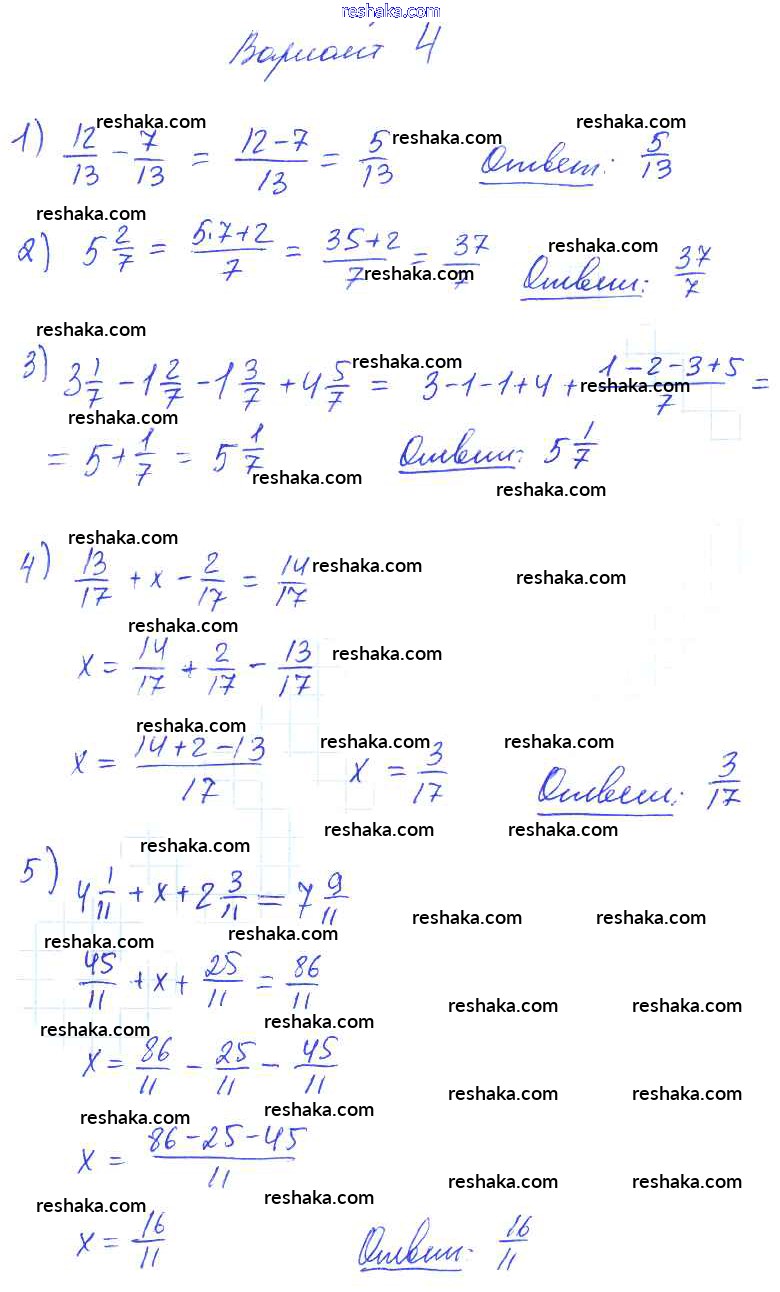 reshaka.com
Вариант 4
reshaka.com reshaka.com reshaka.com
1) 12/13 - 7/13 = (12-7)/13 = 5/13 Ответ: 5/13
reshaka.com reshaka.com
2) 5 2/7 = (5·7+2)/7 = (35+2)/7 = 37/7 Ответ: 37/7
reshaka.com
reshaka.com reshaka.com
3) 3 1/7 - 1 2/7 - 1 3/7 + 4 5/7 = 3-1-1+4 + (1-2-3+5)/7 =
reshaka.com reshaka.com
= 5 + 1/7 = 5 1/7 Ответ: 5 1/7
reshaka.com reshaka.com
reshaka.com reshaka.com reshaka.com
4) 13/17 + x - 2/17 = 14/17
reshaka.com reshaka.com
x = 14/17 + 2/17 - 13/17
reshaka.com reshaka.com reshaka.com
x = (14+2-13)/17 x = 3/17 Ответ: 3/17
reshaka.com reshaka.com reshaka.com
5) 4 1/11 + x + 2 3/11 = 7 9/11
reshaka.com reshaka.com
reshaka.com reshaka.com
45/11 + x + 25/11 = 86/11
reshaka.com reshaka.com
reshaka.com reshaka.com
x = 86/11 - 25/11 - 45/11
reshaka.com reshaka.com
reshaka.com reshaka.com
x = (86-25-45)/11
reshaka.com reshaka.com
reshaka.com reshaka.com
x = 16/11 Ответ: 16/11